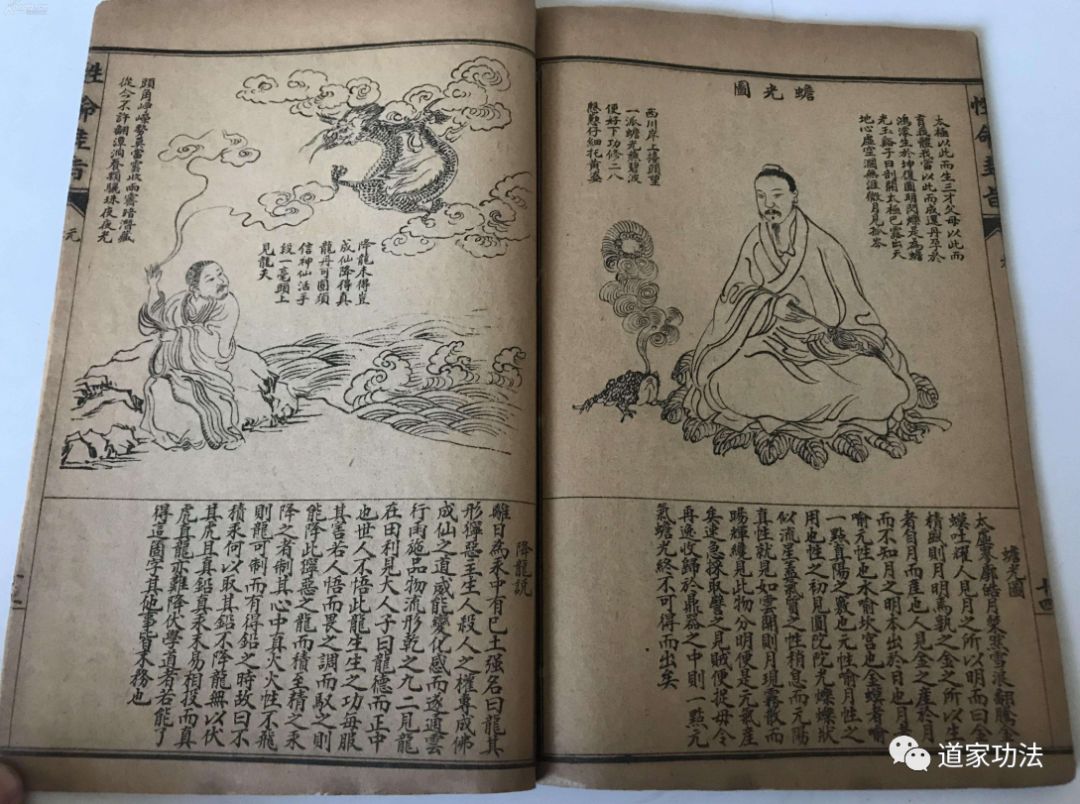 性命圭旨
十四
蟾光圖
太極以此而生三才父母以此而
育我體我當以此而成還丹孕於
鴻濛生於坤復圓明閃爍是為蟾
光玉谿子曰剖開太極已露出天
地心虛空濶無涯微月見岑
西川岸上擡頭望
一派蟾光燕碧波
便好下功修二八
慇懃仔細托黃婆
蟾光圖
太虛寥廓皓月粲寒雪浪翻騰金
蟆吐耀人見月之所以明而曰金
精盛則月明焉孰之金之所以生
者自月而產也人見金之產於月
而不知月之明本出於日也月者
喻元性也水喻坎宮也金蟆者喻
一點真陽之竅也元性喻月性之
用也性之初見圓陀陀光爍爍狀
似流星蓋氣質之性稍息而元陽
真性就見如雲開則月現霧散而
陽輝纔見此物分明便是元氣產
矣速急採取譬之見賊便捉毋令
再逸收歸於鼎器之中則一點元
氣蟾光終不可得而出矣
降龍未得豈
成仙降得真
龍丹可圓須
信神仙活手
段一毫頭上
見龍天
頭角崢嶸勢莫當雲收雨霽暗潛藏
從今不許翻潭洞養頼驪珠夜夜光
性命圭旨
元
降龍說
離日為汞中有巳土强名曰龍其
形獰惡主生人殺人之權專成佛
成仙之道威能變化感而遂通雲
行雨施品物流形乾之九二見龍
在田利見大人子曰龍德而正中
也世人不悟此龍生生之功每服
其害若人悟而畏之調而馭之則
能降此獰惡之龍而積至精之汞
降之者制其心中真火火性不飛
則龍可制而有得鉛之時故曰不
積汞何以取其鉛不降龍無以伏
其虎且真鉛真汞未易相投而真
虎真龍亦難降伏學道者若能了
得這箇字其他事皆末務也
道家功法